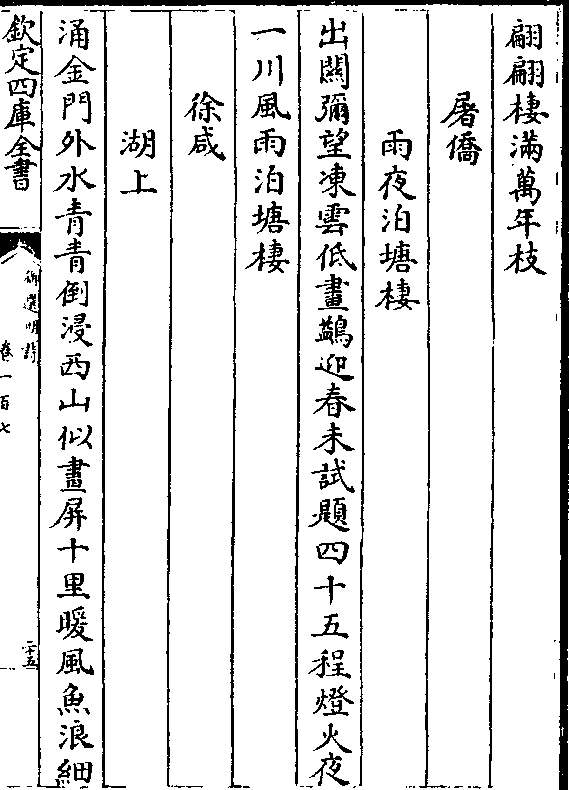 翩翩棲滿萬年枝
屠僑
雨夜泊塘棲
出闗彌望凍雲低畫鷁迎春未試題四十五程燈火夜
一川風雨泊塘棲
徐咸
湖上
涌金門外水青青倒浸西山似畫屏十里暖風魚浪細
欽定四庫全書
御選明詩
卷一百七
二十五